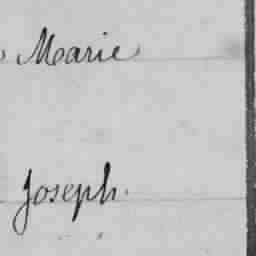 Marie
Joseph.